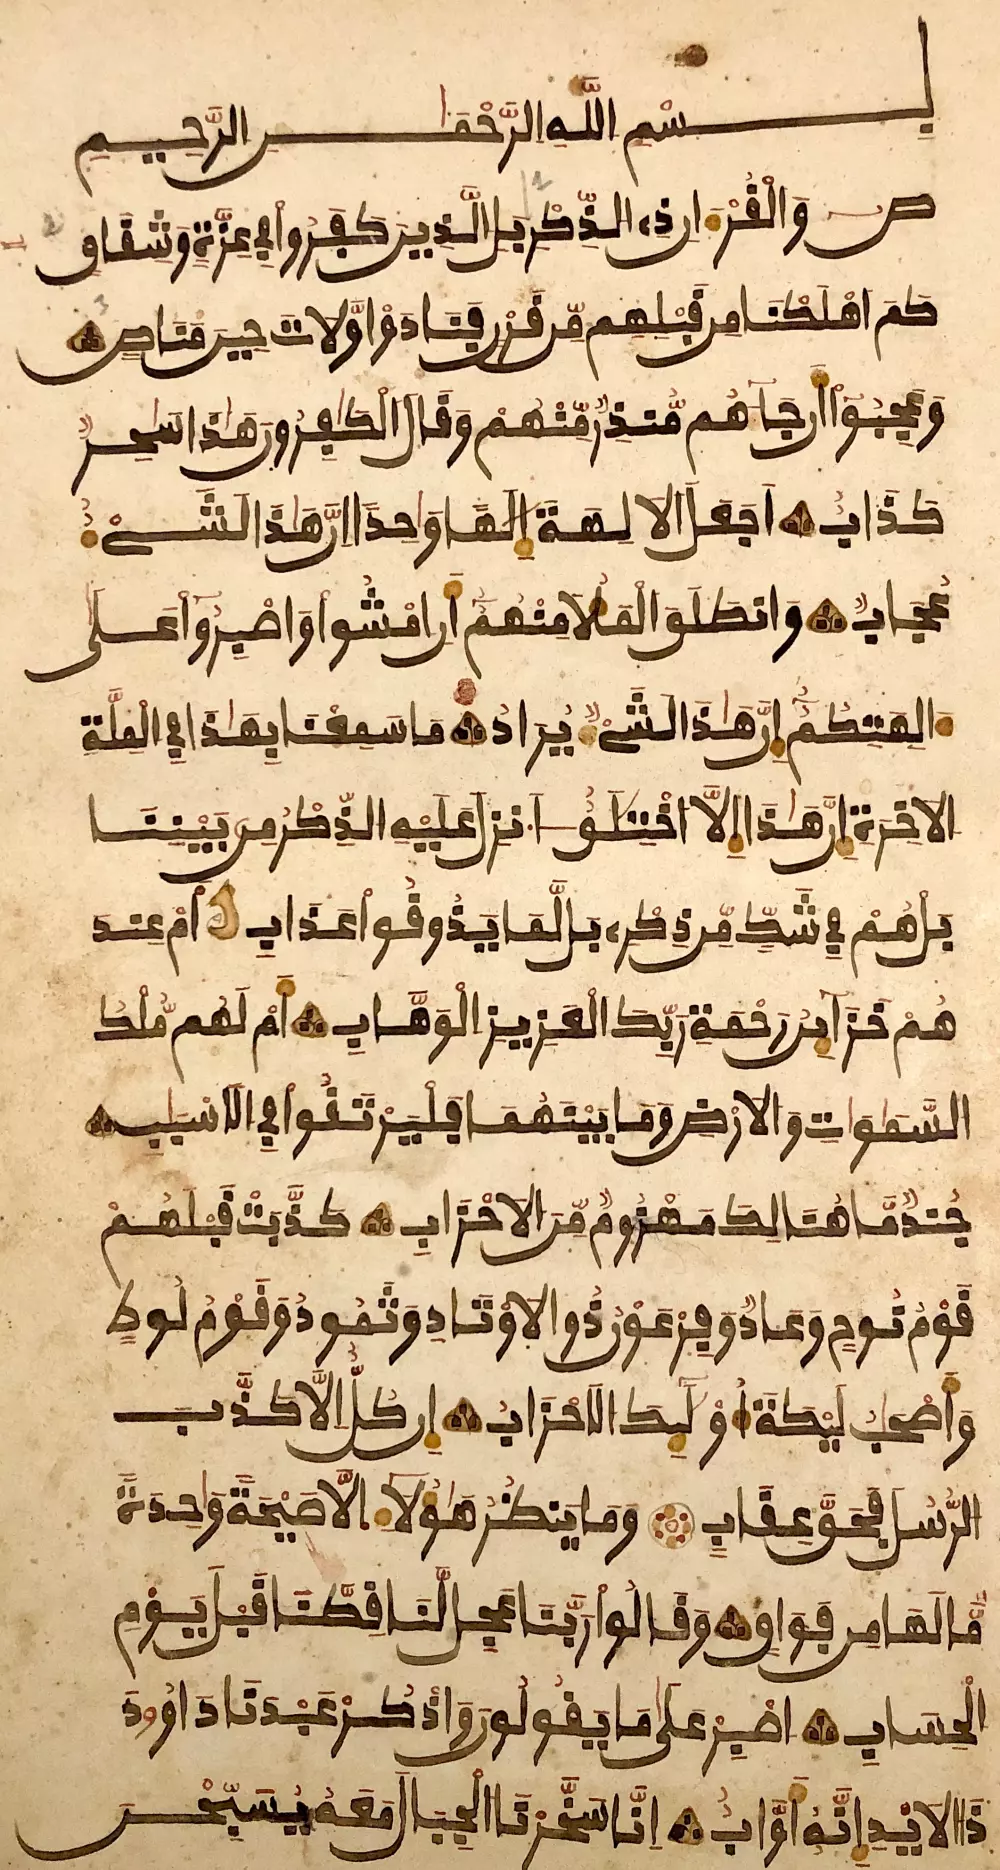 بِسْمِ اللَّهِ الرَّحْمَٰنِ الرَّحِيمِ
ص وَالْقُرْءَانِ ذِى الذِّكْرِ بَلِ الَّذِينَ كَفَرُوا فِى عِزَّةٍ وَشِقَاقٍ
كَمَ اهْلَكْنَا مِن قَبْلِهِم مِّن قَرْنٍ فَنَادَوْا وَّلَاتَ حِينَ مَنَاصٍ
وَعَجِبُوٓا أَن جَآءَهُم مُّنذِرٌ مِّنْهُمْ وَقَالَ الْكَٰفِرُونَ هَٰذَا سَٰحِرٌ
كَذَّابٌ اَجَعَلَ الَالِهَةَ إِلَٰهًا وَٰحِدًا اِنَّ هَٰذَا لَشَىْءٌ
عُجَابٌ وَانطَلَقَ الْمَلَأُ مِنْهُمُۥٓ أَنِ امْشُوا وَاصْبِرُوٓا عَلَىٰٓ
ءَالِهَتِكُمُۥٓ إِنَّ هَٰذَا لَشَىْءٌ يُرَادُ مَا سَمِعْنَا بِهَٰذَا فِى الْمِلَّةِ
الَاخِرَةِ إِنْ هَٰذَا إِلَّا اخْتِلَٰقٌ اَ۟نزِلَ عَلَيْهِ الذِّكْرُ مِن بَيْنِنَا
بَلْ هُمْ فِى شَكٍّ مِّن ذِكْرِى بَل لَّمَّا يَذُوقُوا عَذَابِ أَمْ عِندَ
هُمْ خَزَآئِنُ رَحْمَةِ رَبِّكَ الْعَزِيزِ الْوَهَّابِ أَمْ لَهُم مُّلْكُ
السَّمَٰوَٰتِ وَالَارْضِ وَمَا بَيْنَهُمَا فَلْيَرْتَقُوا فِى الَاسْبَٰبِ
جُندٌ مَّا هُنَالِكَ مَهْزُومٌ مِّنَ الَاحْزَابِ كَذَّبَتْ قَبْلَهُمْ
قَوْمُ نُوحٍ وَعَادٌ وَفِرْعَوْنُ ذُو الَاوْتَادِ وَثَمُودُ وَقَوْمُ لُوطٍ
وَأَصْحَٰبُ لَيْكَةَ أُوْلَٰٓئِكَ الَاحْزَابُ إِن كُلٌّ اِلَّا كَذَّبَ
الرُّسُلَ فَحَقَّ عِقَابِ وَمَا يَنظُرُ هَٰٓؤُلَآءِ الَّا صَيْحَةً وَٰحِدَةً
مَّا لَهَا مِن فَوَاقٍ وَقَالُوا رَبَّنَا عَجِّل لَّنَا قِطَّنَا قَبْلَ يَوْمِ
الْحِسَابِ اصْبِرْ عَلَىٰ مَا يَقُولُونَ وَاذْكُرْ عَبْدَنَا دَاوُۥدَ
ذَا الَايْدِ إِنَّهُۥٓ أَوَّابٌ اِنَّا سَخَّرْنَا الْجِبَالَ مَعَهُۥ يُسَبِّحْنَ